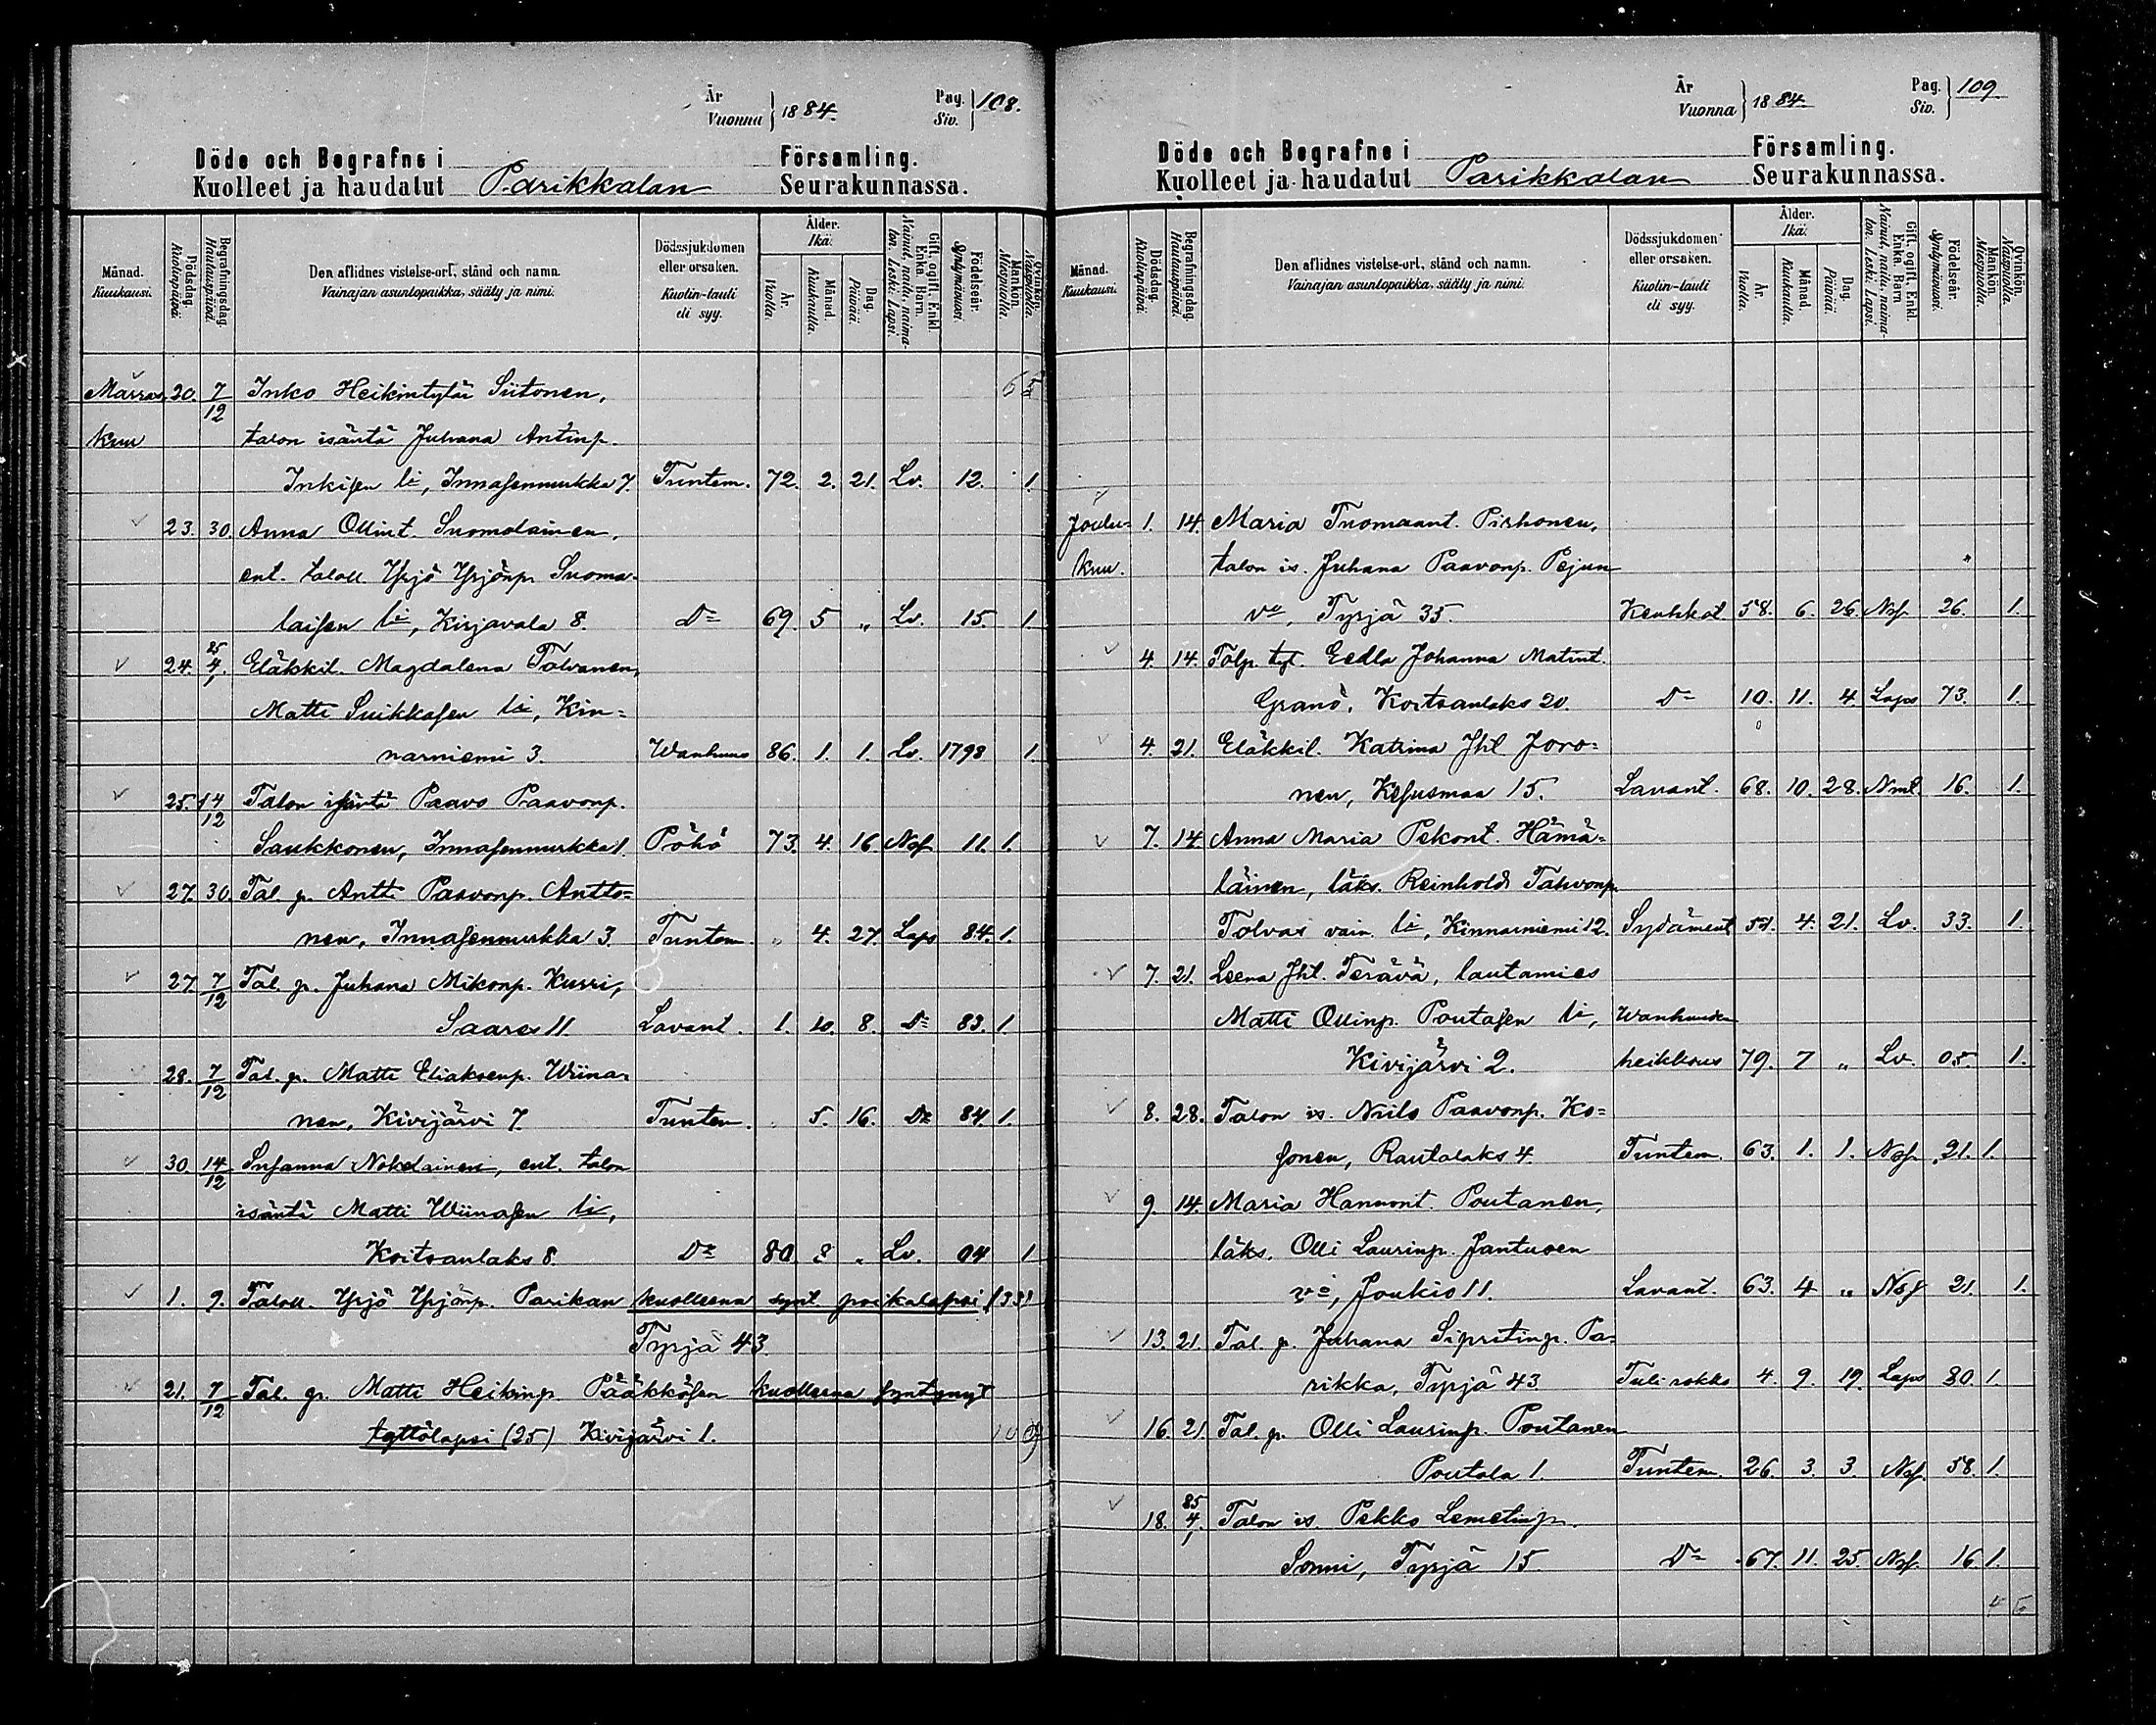 År
Vuonna } 1884. Pag. Siv. } 108.
Döde och Begrafne i Församling.
Kuolleet ja haudatut Parikkalan Seurakunnassa.
Månad. Kuukausi. Dödsdag. Kuolinpäivä. Begrafningsdag. Hautauspäivä. Den aflidnes vistelse-ort, stånd och namn. Vainajan asuntopaikka, sääty ja nimi. Dödssjukdomen eller orsaken. Kuolin-tauti eli syy. Ålder. Ikä. År. Vuotta. Månad. Kuukautta. Dag. Päivää. Gift, ogift, Enkl. Enka. Barn. Nainut, naitu, naimaton. Leski. Lapsi. Födelseår. Syntymävuosi. Mankön. Miespuolia. Qvinkön. Naispuolia.
Marras 20. 7/12 Inko Heikintytär Siitonen, 6 5
kuu talon isäntä Juhana Antinp.
Inkisen li, Innasenmukka 7. Tuntem. 72. 2. 21. Lv. 12. 1.
23. 30. Anna Ollint. Suomalainen,
ent. taloll Yrjö Yrjönp. Suoma-
laisen li, Kirjavala 8. Do 69. 5 „ Lv. 15. 1.
24. 25 4/1. Eläkkil. Magdalena Tolvanen,
Matti Suikkasen li, Kin=
narniemi 3. Wanhuus 86. 1. 1. Lv. 1798 1.
25. 14/12 Talon isäntä Paavo Paavonp.
Saukkonen, Innasenmukka 1. Pöhö 73. 4. 16. Nsf 11. 1.
27. 30. Tal. p. Antti Paavonp. Antto=
nen, Innasenmukka 3. Tuntem. „ 4. 27. Laps 84. 1.
27. 7/12 Tal. p. Juhana Mikonp. Kurri,
Saares 11. Lavant. 1. 10. 8. Do 83. 1
28. 7/12 Tal. p. Matti Eliaksenp. Wiina-
nen, Kivijärvi 7. Tuntem. „ 5. 16. Do 84. 1.
30. 14/12 Susanna Nokelainen, ent. talon
isäntä Matti Wiinasen li,
Koitsanlaks 8. Do 80. 8 „ Lv. 04 1
1. 9. Taloll. Yrjö Yrjönp. Parikan kuolleena synt. poikalapsi (33)
Tyrjä 43.
21. 7/12 Tal. p. Matti Heikinp. Pääkkösen kuolleena syntynyt
tyttölapsi (25) Kivijärvi 1.
År
Vuonna } 1884. Pag. Siv. } 109.
Döde och Begrafne i Församling.
Kuolleet ja haudatut Parikkalan Seurakunnassa.
Månad. Kuukausi. Dödsdag. Kuolinpäivä. Begrafningsdag. Hautauspäivä. Den aflidnes vistelse-ort, stånd och namn. Vainajan asuntopaikka, sääty ja nimi. Dödssjukdomen eller orsaken. Kuolin-tauti eli syy. Ålder. Ikä. År. Vuotta. Månad. Kuukautta. Dag. Päivää. Gift, ogift, Enkl. Enka. Barn. Nainut, naitu, naimaton. Leski. Lapsi. Födelseår. Syntymävuosi. Mankön. Miespuolia. Qvinkön. Naispuolia.
Joulu= 1. 14. Maria Tuomaant. Pirhonen,
kuu. talon is. Juhana Paavonp. Pejun
vo, Tyrjä 35. Keuhkot. 58. 6. 26. Nsf. 26. 1.
4. 14. Talp. tyt. Eedla Johanna Matint.
Granö, Koitsanlaks 20. Do 10. 11. 4. Laps 73. 1.
4. 21. Eläkkil. Katrina Jhl Joro=
nen, Kesusmaa 15. Lavant. 68. 10. 28. Nmt. 16. 1.
7. 14. Anna Maria Pekont. Hämä=
läinen, läks. Reinhold Tahvonp.
Tolvas vain. li, Kinnarniemi 12. Sydäment 51. 4. 21. Lv. 33. 1.
7. 21. Leena Jhl. Terävä, lautamies
Matti Ollinp. Poutasen li, Wanhuuden
Kivijärvi 2. heikkous 79. 7 „ Lv. 05. 1.
8. 28. Talon is. Niilo Paavonp. Ko=
sonen, Rautalaks 4. Tuntem. 63. 1. 1. Nsf. 21. 1.
9. 14. Maria Hannont. Poutanen,
läks. Olli Laurinp. Jantusen
vo, Joukio 11. Lavant. 63. 4 „ Nsf 21. 1.
13. 21. Tal. p. Juhana Sipritinp. Pa-
rikka, Tyrjä 43. Tulirokko 4. 9. 19. Laps 80. 1.
16. 21. Tal. p. Olli Laurinp. Poutanen
Poutala 1. Tuntem. 26. 3. 3. Nsf. 58. 1.
18. 85 4/1. Talon is. Pekko Lemetinp.
Sonni, Tyrjä 15. Do 67. 11. 25. Nsf. 16 1.
4 6